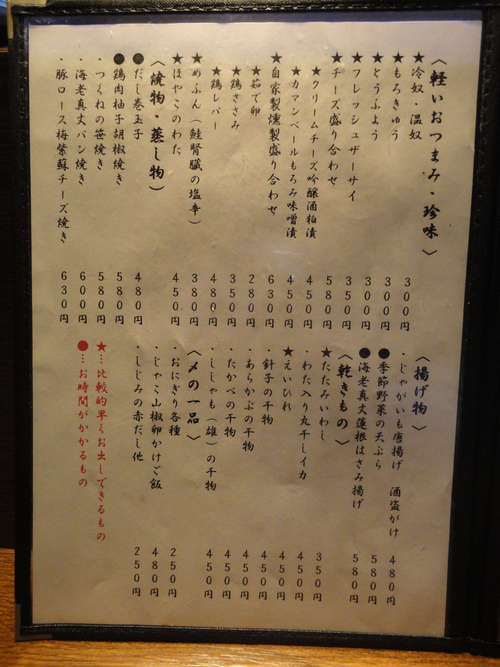 〈軽いおつまみ・珍味〉
★冷奴・温奴 300円
★もろきゅう 300円
★とうふよう 300円
★フレッシュザーサイ 350円
★チーズ盛り合わせ 580円
★クリームチーズ吟醸酒粕漬 450円
★カマンベールもろみ味噌漬 450円
★自家製燻製盛り合わせ 630円
★茹で卵 280円
★鶏ささみ 350円
★鶏レバー 480円
★めふん(鮭腎臓の塩辛) 380円
★ほやこのわた 450円
〈焼物・蒸し物〉
●だし巻玉子 480円
●鶏肉柚子胡椒焼き 580円
・つくねの笹焼き 580円
・海老真丈パン焼き 600円
・豚ロース梅紫蘇チーズ焼き 630円
〈揚げ物〉
・じゃがいも唐揚げ 酒盗がけ 480円
●季節野菜の天ぷら 580円
●海老真丈蓮根はさみ揚げ 580円
〈乾きもの〉
★たたみいわし 350円
・わた入り丸干しイカ 450円
★えいひれ 450円
・針子の干物 450円
・あらかぶの干物 450円
・たかべの干物 450円
・ししゃも(雄)の干物 450円
〈〆の一品〉
・おにぎり各種 250円
・じゃこ山椒卵かけご飯 480円
・しじみの赤だし他 250円
★…比較的早くお出しできるもの
●…お時間がかかるもの